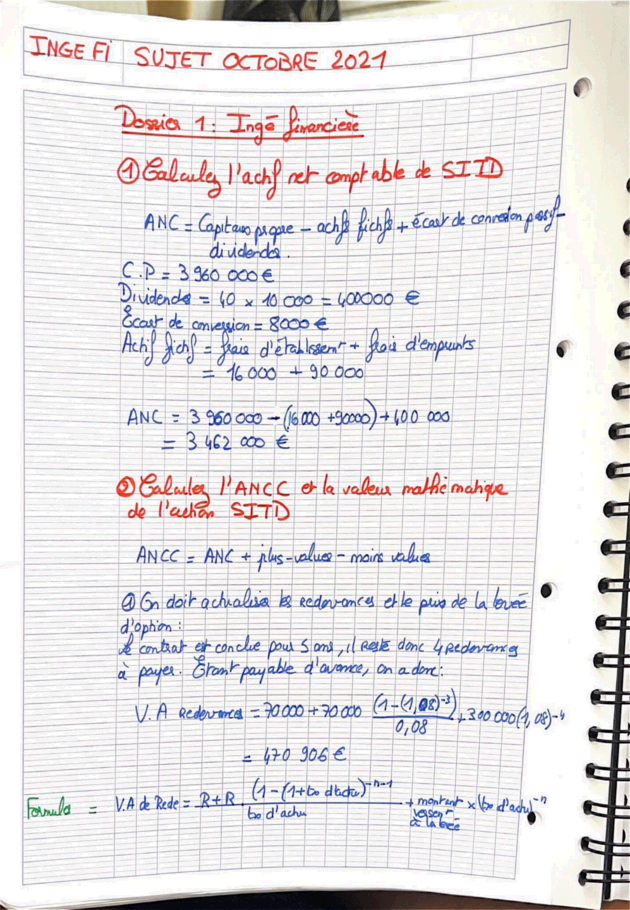 INGE Fi SUJET OCTOBRE 2021
Dossier 1 : Ingé financière
① Calculez l'actif net comptable de SITD
ANC = Capitaux propre - actifs fictifs + écart de conversion passif -
dividendes.
C.P = 3 960 000 €
Dividendes = 40 x 10 000 = 400000 €
Ecart de conversion = 8000 €
Actif fictif = frais d'établissemt + frais d'emprunts
= 16 000 + 90 000
ANC = 3 960 000 - (16 000 + 90000) + 400 000
= 3 462 000 €
② Calculez l'ANCC et la valeur mathématique
de l'action SITD
ANCC = ANC + plus-values - moins values
① On doit actualiser les redevances et le prix de la levée
d'option :
le contrat est conclue pour 5 ans, il reste donc 4 Redevances
à payer. Étant payable d'avance, on a donc :
V.A Redevances = 70 000 + 70 000 (1-(1,08)-3) / 0,08 + 300 000 (1,08)-4
= 470 906 €
Formule = V.A de Rede = R + R (1-(1+tx d'actu)-n-1 / tx d'actu + montant versemt à la levée x (tx d'actu)-n